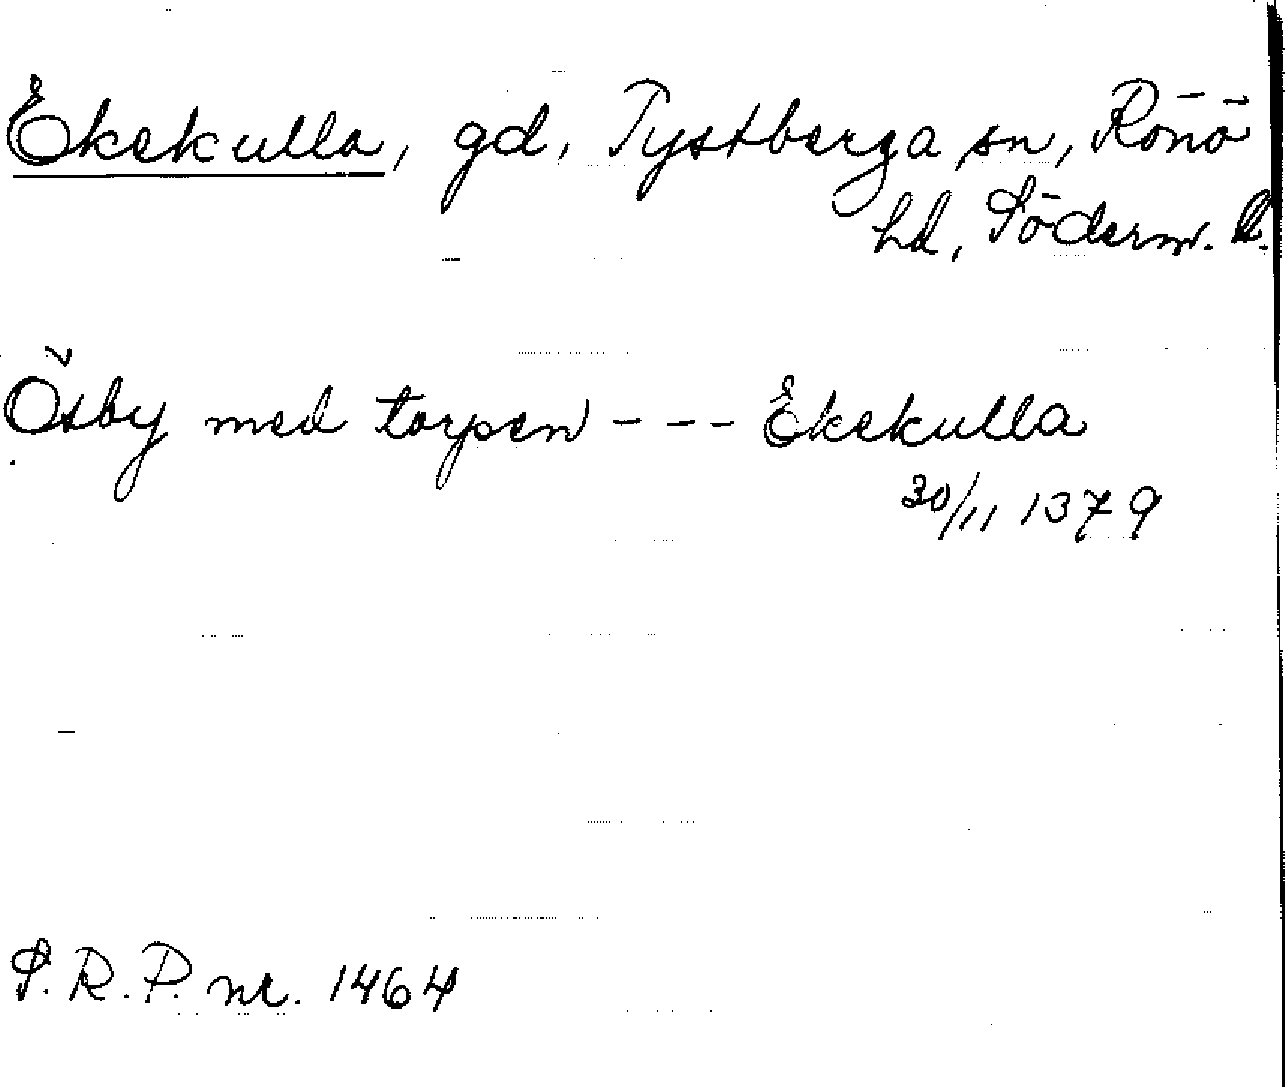 Ekekulla, gd, Tystberga sn, Rönö
hd, Söderm. l.
Ösby med torpen - - - Ekekulla
30/11 1379
S. R. P. nr. 1464